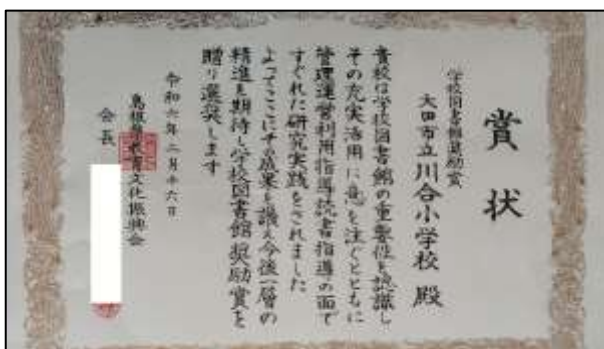 賞状
学校図書館奨励賞
大田市立川合小学校 殿
貴校は学校図書館の重要性を認識し
その充実活用に意を注ぐとともに
管理運営利用指導読書指導の面で
すぐれた研究実践をされました
よってここにその成果を讃え今後一層の
精進を期待し学校図書館奨励賞を
贈り選奨します
令和六年二月十六日
島根県教育文化振興会
会長